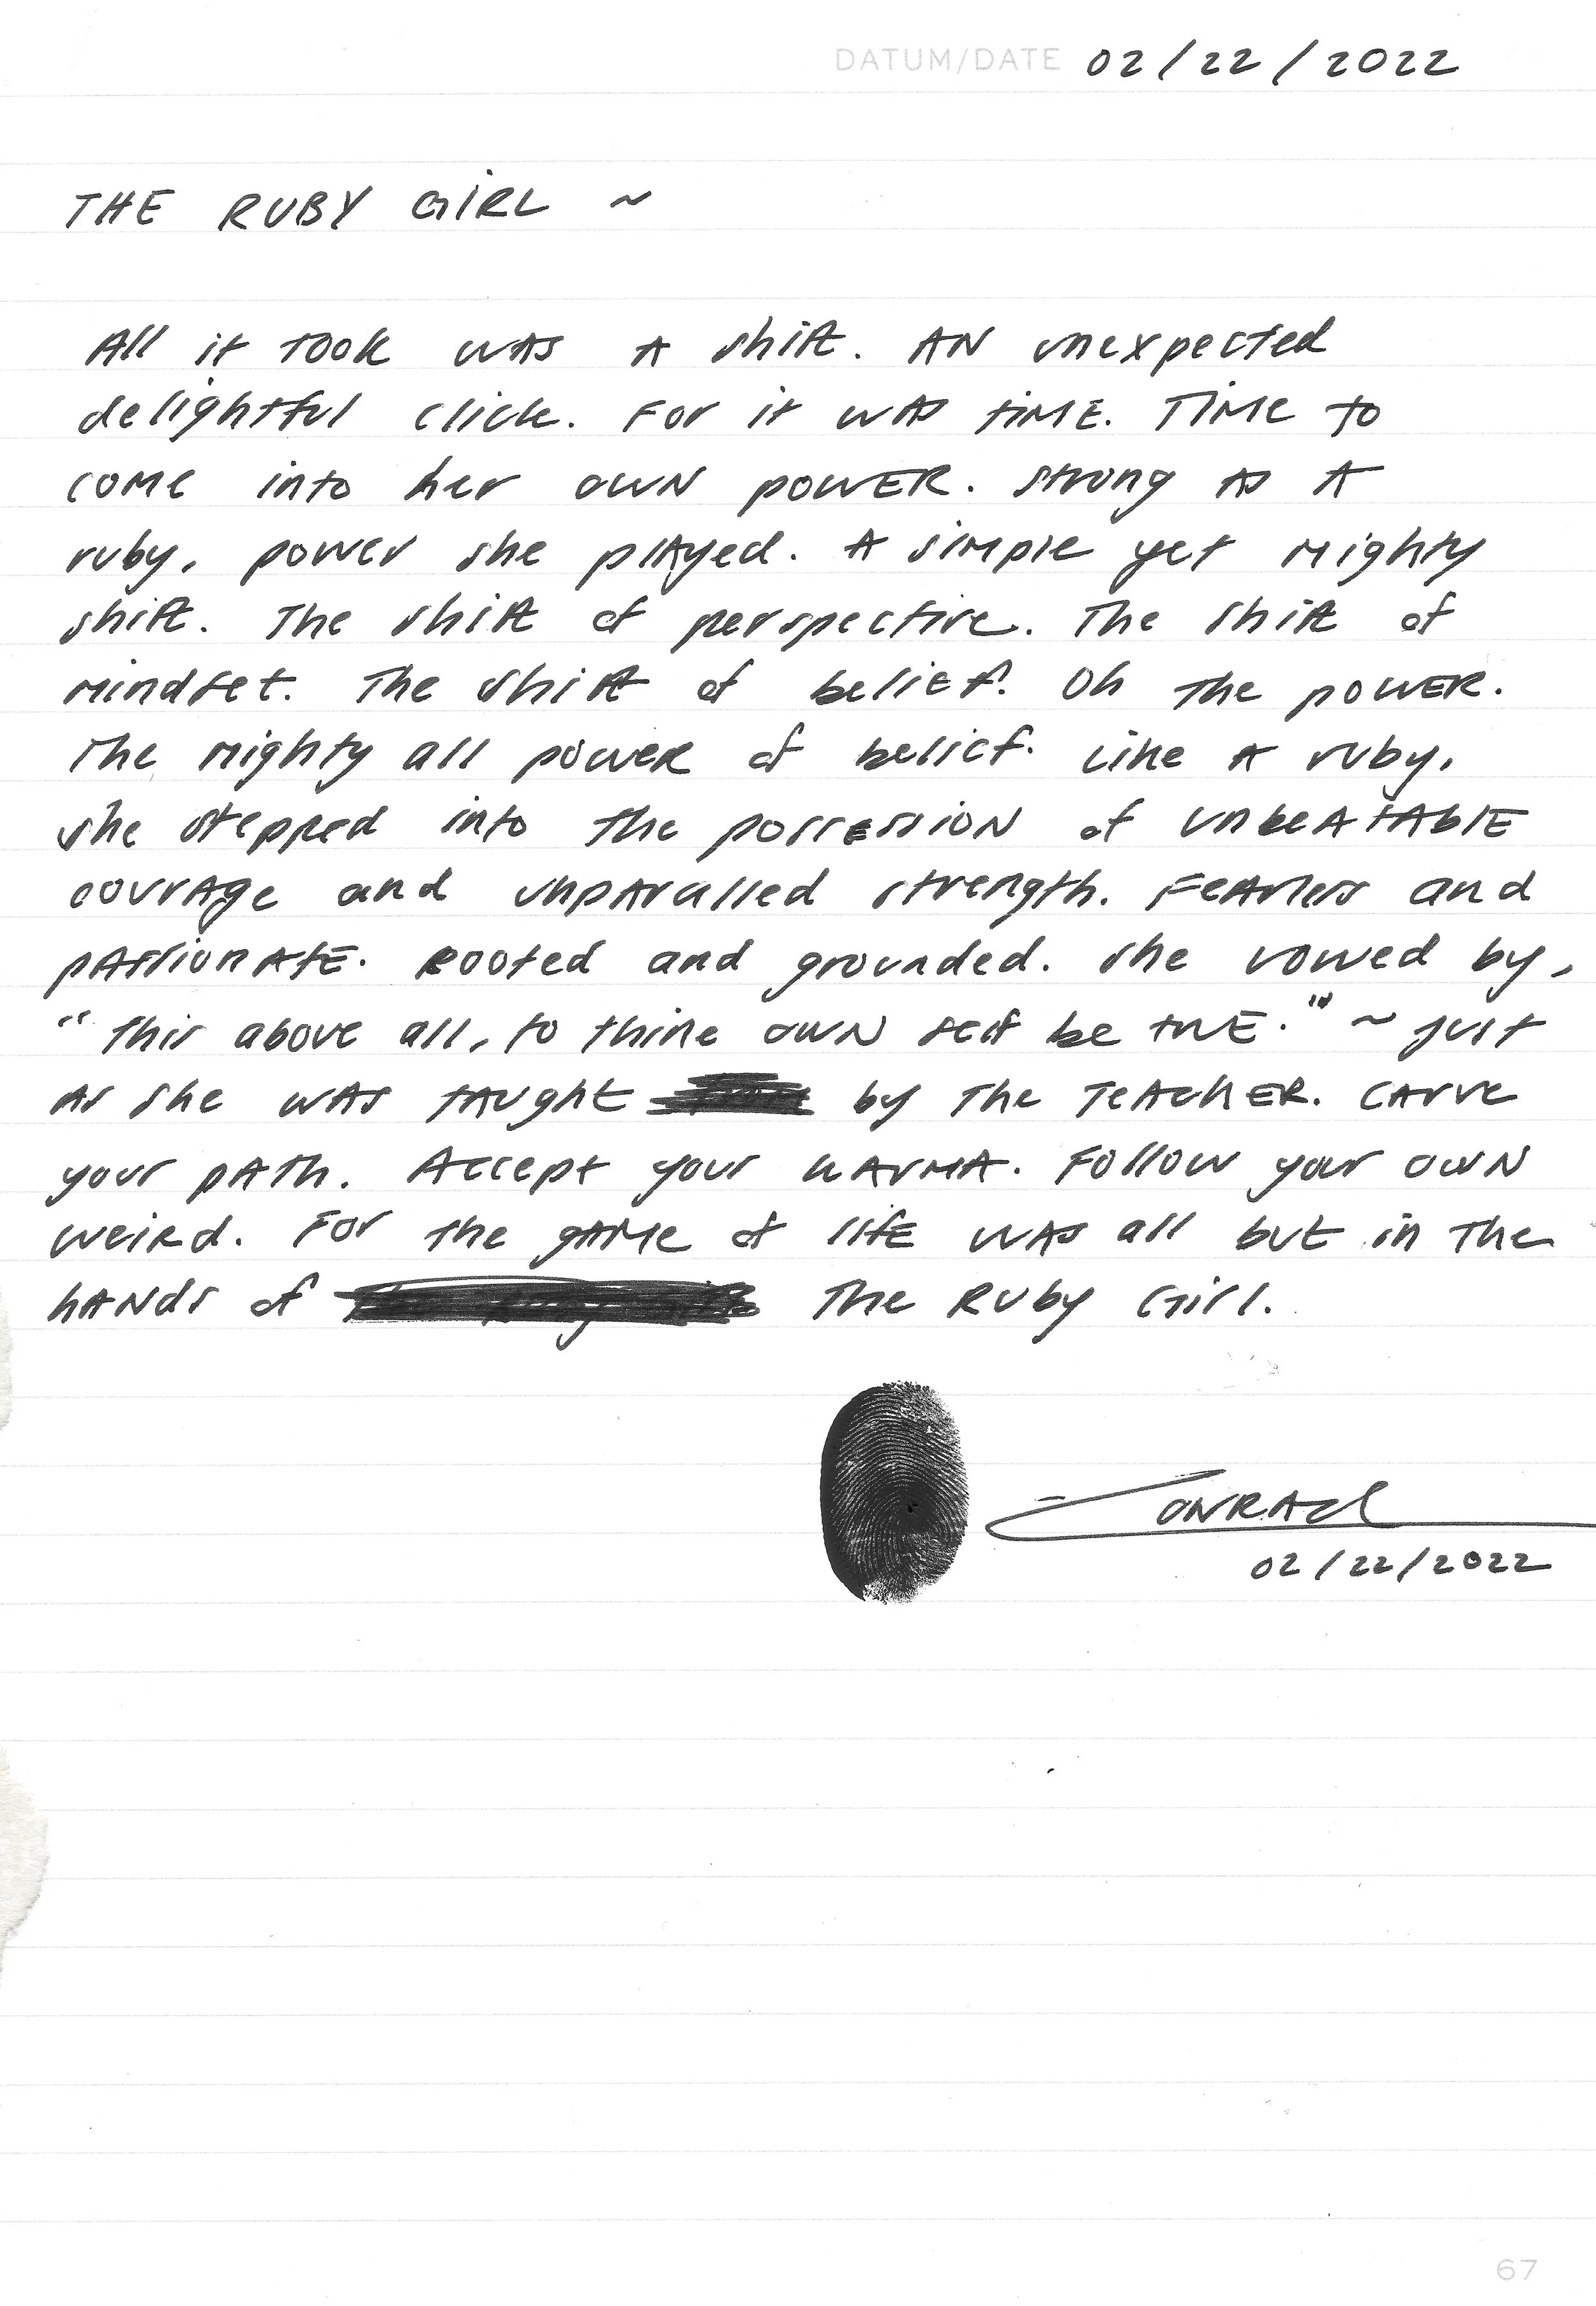 DATUM/DATE 02/22/2022
THE RUBY GIRL ~
All it took was a shift. An unexpected
delightful click. For it was time. Time to
come into her own power. Strong as a
ruby, power she played. A simple yet mighty
shift. The shift of perspective. The shift of
mindset. The shift of belief. Oh the power.
The mighty all power of belief. Like a ruby,
she stepped into the possession of unbeatable
courage and unparalled strength. Fearless and
passionate. Rooted and grounded. She vowed by,
"This above all, to thine own self be true." ~ Just
as she was taught by the Teacher. Carve
your path. Accept your karma. Follow your own
weird. For the game of life was all but in the
hands of The Ruby Girl.
Conrad
02/22/2022
67